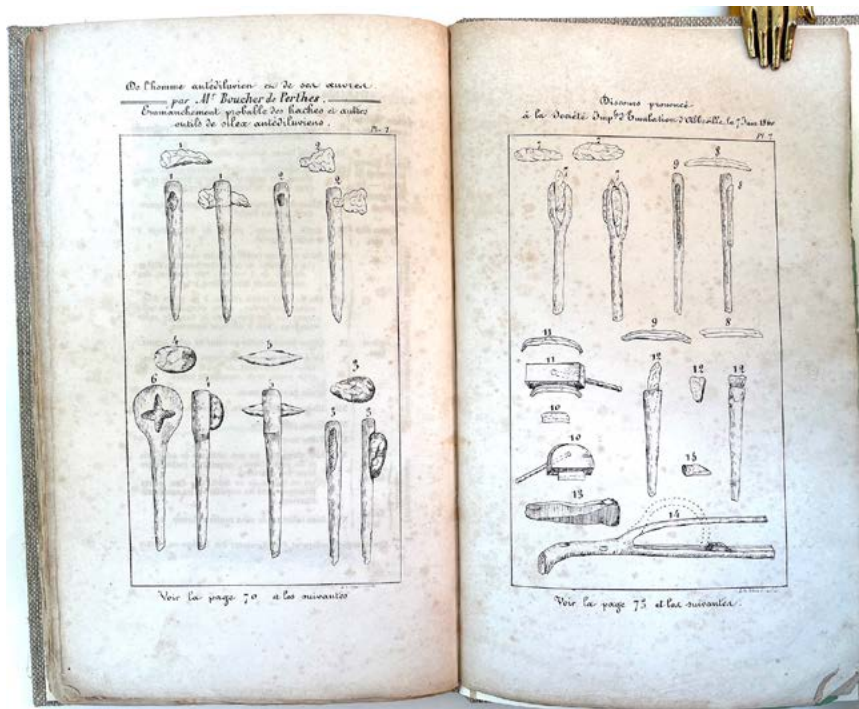 De l'homme antédiluvien et de ses œuvres
par Mr Boucher de Perthes.
Emmanchement probable des haches et autres
outils de silex antédiluviens.
Pl. 1
1
2
1
1
2
2
4
5
3
6
4
5
3
3
Voir la page 70 et les suivantes
Discours prononcé
à la Société Imple d'Emulation d'Abbeville, le 7 Juin 1860
Pl. 2
7
7
9
8
7
7
8
11
9
8
11
12
12
12
10
10
13
13
14
Voir la page 75 et les suivantes.